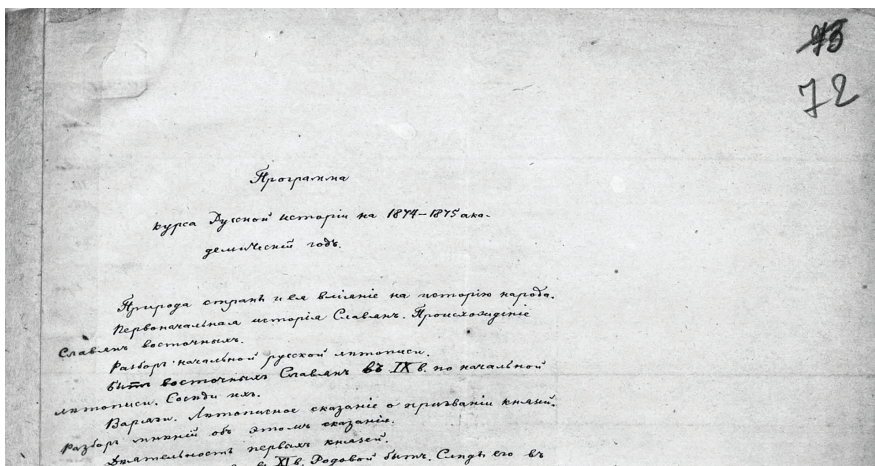 72
Программа
курса Русской исторіи на 1874–1875 ака-
демическій годъ.
Природа страны и ея вліяніе на исторію народа.
Первоначальная исторія Славянъ. Происхожденіе
Славянъ восточныхъ.
Разборъ начальной русской лѣтописи.
Бытъ восточныхъ Славянъ въ IX в. по начальной
лѣтописи. Сосѣди ихъ.
Варяги. Лѣтописное сказаніе о призваніи князей.
Разборъ мнѣній объ этомъ сказаніи.
Дѣятельность первыхъ князей.
в XI в. Родовой бытъ. Слѣды его въ